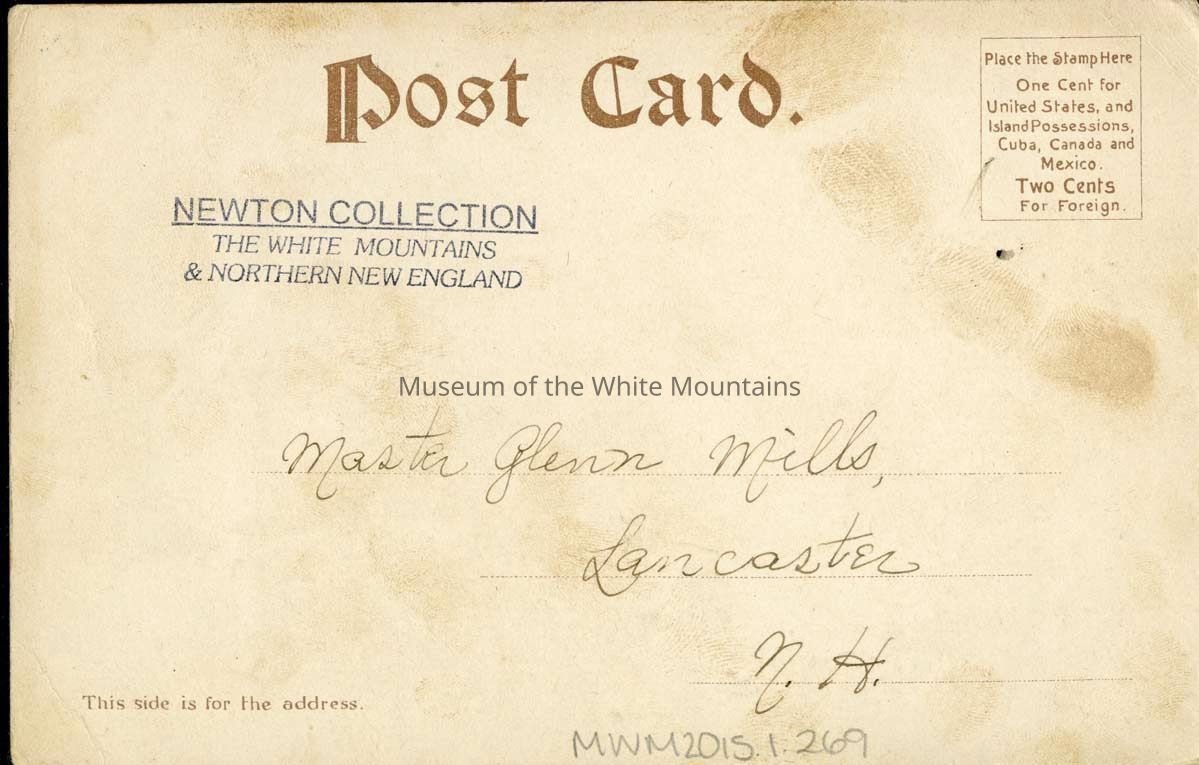 Post Card.
Place the Stamp Here
One Cent for
United States, and
Island Possessions,
Cuba, Canada and
Mexico.
Two Cents
For Foreign.
NEWTON COLLECTION
THE WHITE MOUNTAINS
& NORTHERN NEW ENGLAND
Museum of the White Mountains
Master Glenn Mills,
Lancaster
N. H.
This side is for the address.
MWM2015.1.269